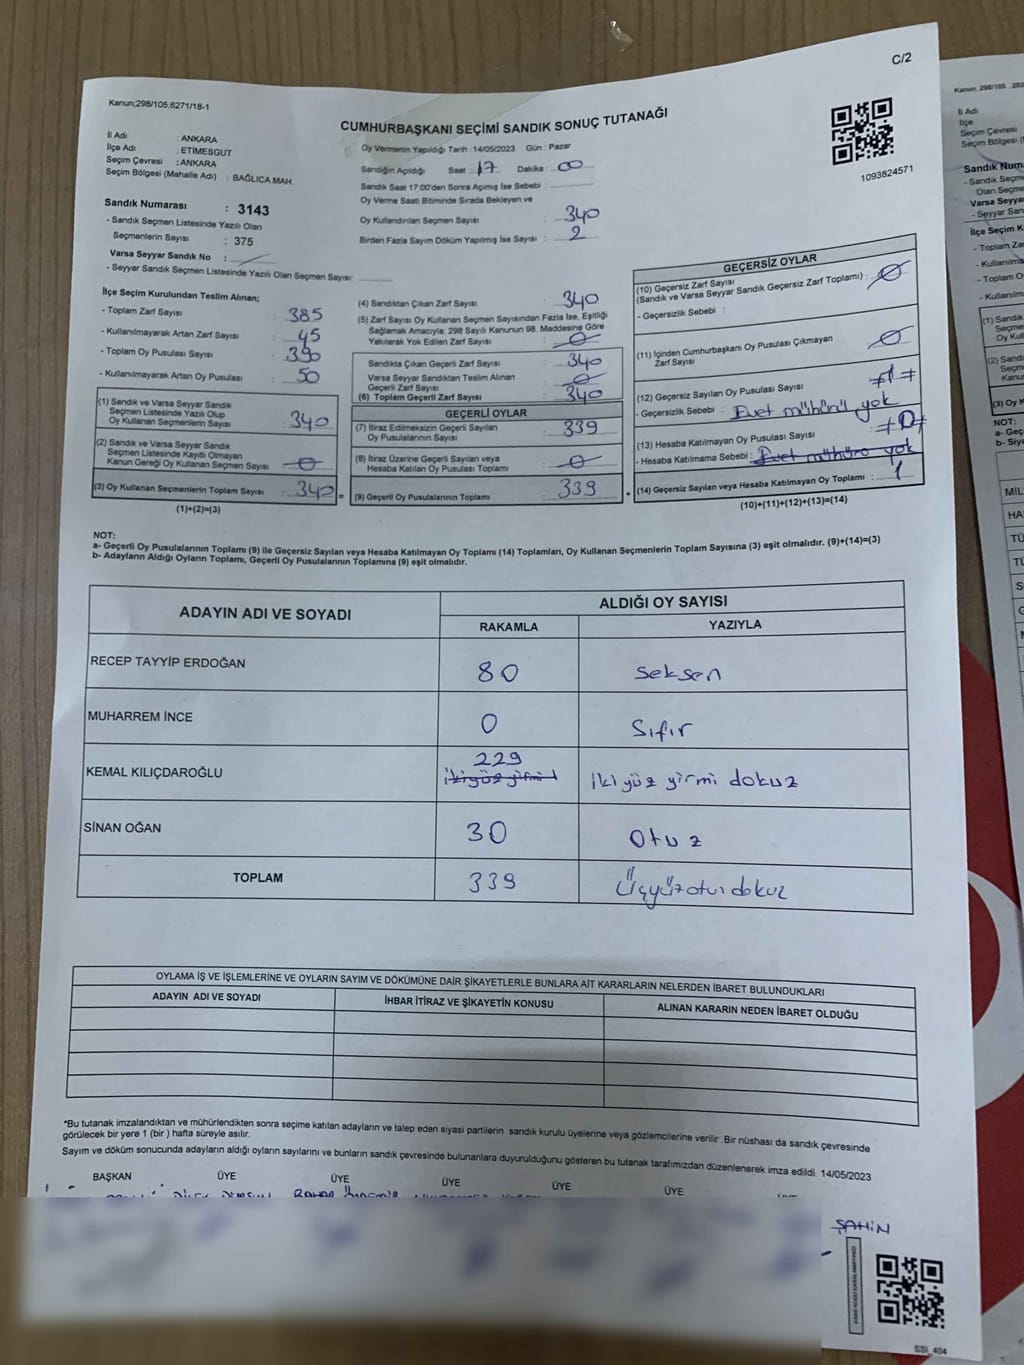 C/2
Kanun;298/105,6271/18-1
CUMHURBAŞKANI SEÇİMİ SANDIK SONUÇ TUTANAĞI
İl Adı : ANKARA
İlçe Adı : ETİMESGUT
Seçim Çevresi : ANKARA
Seçim Bölgesi (Mahalle Adı) : BAĞLICA MAH.
Oy Vermenin Yapıldığı Tarih :14/05/2023 Gün : Pazar
Sandığın Açıldığı Saat : 17 Dakika : 00
Sandık Saat 17:00'den Sonra Açımış İse Sebebi :
Oy Verme Saati Bitiminde Sırada Bekleyen ve
Oy Kullandırılan Seçmen Sayısı : 340
Birden Fazla Sayım Döküm Yapılmış İse Sayısı : 2
1093824571
Sandık Numarası : 3143
- Sandık Seçmen Listesinde Yazılı Olan
Seçmenlerin Sayısı : 375
Varsa Seyyar Sandık No :
- Seyyar Sandık Seçmen Listesinde Yazılı Olan Seçmen Sayısı:
İlçe Seçim Kurulundan Teslim Alınan;
- Toplam Zarf Sayısı : 385
- Kullanılmayarak Artan Zarf Sayısı : 45
- Toplam Oy Pusulası Sayısı : 390
- Kullanılmayarak Artan Oy Pusulası : 50
(1) Sandık ve Varsa Seyyar Sandık
Seçmen Listesinde Yazılı Olup
Oy Kullanan Seçmenlerin Sayısı : 340
(2) Sandık ve Varsa Seyyar Sandık
Seçmen Listesinde Kayıtlı Olmayan
Kanun Gereği Oy Kullanan Seçmen Sayısı : 0
(3) Oy Kullanan Seçmenlerin Toplam Sayısı : 340 =
(1)+(2)=(3)
(4) Sandıktan Çıkan Zarf Sayısı : 340
(5) Zarf Sayısı Oy Kullanan Seçmen Sayısından Fazla İse, Eşitliği
Sağlamak Amacıyla; 298 Sayılı Kanunun 98. Maddesine Göre
Yakılarak Yok Edilen Zarf Sayısı : 0
Sandıkta Çıkan Geçerli Zarf Sayısı : 340
Varsa Seyyar Sandıktan Teslim Alınan
Geçerli Zarf Sayısı : 0
(6) Toplam Geçerli Zarf Sayısı : 340
GEÇERLİ OYLAR
(7) İtiraz Edilmeksizin Geçerli Sayılan
Oy Pusulalarının Sayısı : 339
(8) İtiraz Üzerine Geçerli Sayılan veya
Hesaba Katılan Oy Pusulası Toplamı : 0
(9) Geçerli Oy Pusulalarının Toplamı : 339 +
GEÇERSİZ OYLAR
(10) Geçersiz Zarf Sayısı
(Sandık ve Varsa Seyyar Sandık Geçersiz Zarf Toplamı) : 0
- Geçersizlik Sebebi :
(11) İçinden Cumhurbaşkanı Oy Pusulası Çıkmayan
Zarf Sayısı : 0
(12) Geçersiz Sayılan Oy Pusulası Sayısı : #1#
- Geçersizlik Sebebi : Evet mührü yok
(13) Hesaba Katılmayan Oy Pusulası Sayısı : #0#
- Hesaba Katılmama Sebebi : Evet mührü yok
(14) Geçersiz Sayılan veya Hesaba Katılmayan Oy Toplamı : 1
(10)+(11)+(12)+(13)=(14)
NOT:
a- Geçerli Oy Pusulalarının Toplamı (9) ile Geçersiz Sayılan veya Hesaba Katılmayan Oy Toplamı (14) Toplamları, Oy Kullanan Seçmenlerin Toplam Sayısına (3) eşit olmalıdır. (9)+(14)=(3)
b- Adayların Aldığı Oyların Toplamı, Geçerli Oy Pusulalarının Toplamına (9) eşit olmalıdır.
ADAYIN ADI VE SOYADI
ALDIĞI OY SAYISI
RAKAMLA YAZIYLA
RECEP TAYYİP ERDOĞAN 80 Seksen
MUHARREM İNCE 0 Sıfır
KEMAL KILIÇDAROĞLU 229 ikiyüz yirmi iki yüz yirmi dokuz
SİNAN OĞAN 30 Otuz
TOPLAM 339 Üçyüzotuzdokuz
OYLAMA İŞ VE İŞLEMLERİNE VE OYLARIN SAYIM VE DÖKÜMÜNE DAİR ŞİKAYETLERLE BUNLARA AİT KARARLARIN NELERDEN İBARET BULUNDUKLARI
ADAYIN ADI VE SOYADI İHBAR İTİRAZ VE ŞİKAYETİN KONUSU ALINAN KARARIN NEDEN İBARET OLDUĞU
*Bu tutanak imzalandıktan ve mühürlendikten sonra seçime katılan adayların ve talep eden siyasi partilerin sandık kurulu üyelerine veya gözlemcilerine verilir .Bir nüshası da sandık çevresinde
görülecek bir yere 1 (bir ) hafta süreyle asılır.
Sayım ve döküm sonucunda adayların aldığı oyların sayılarını ve bunların sandık çevresinde bulunanlara duyurulduğunu gösteren bu tutanak tarafımızdan düzenlenerek imza edildi. 14/05/2023
BAŞKAN ÜYE ÜYE ÜYE ÜYE ÜYE
ŞAHİN
SSI_404
Kanun, 298/105
İl Adı
İlçe
Seçim Çevresi
Seçim Bölgesi
Sandık Num
- Sandık Seçm
Olan Seçme
Varsa Seyya
- Seyyar San
İlçe Seçim K
- Toplam Za
- Kullanılma
- Toplam O
- Kullanılm
NOT:
a- Geç